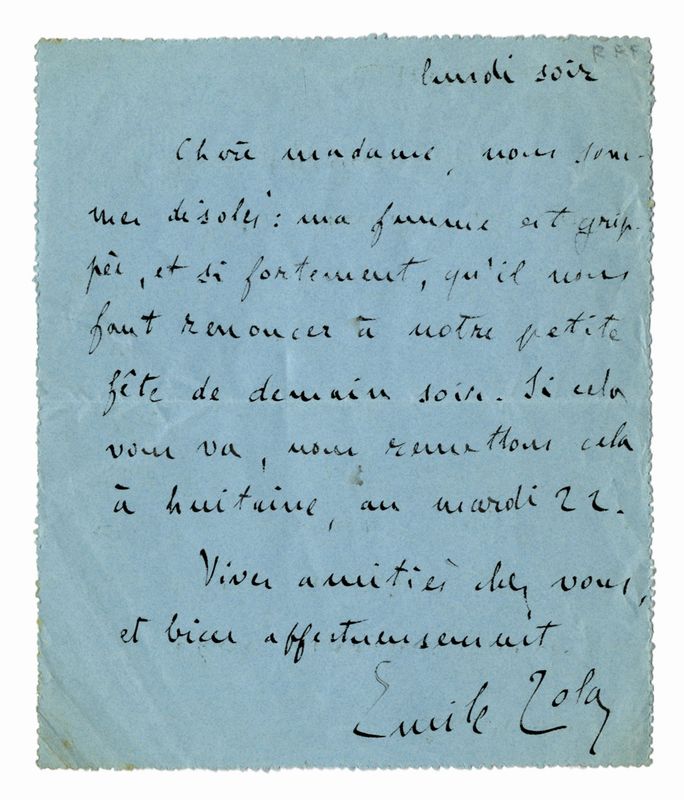 RFF
lundi soir
Chère madame, nous som-
mes désolés : ma femme est grip-
pée, et si fortement, qu'il nous
faut renoncer à notre petite
fête de demain soir. Si cela
vous va, nous remettons cela
à huitaine, au mardi 22.
Vives amitiés chez vous,
et bien affectueusement
Emile Zola